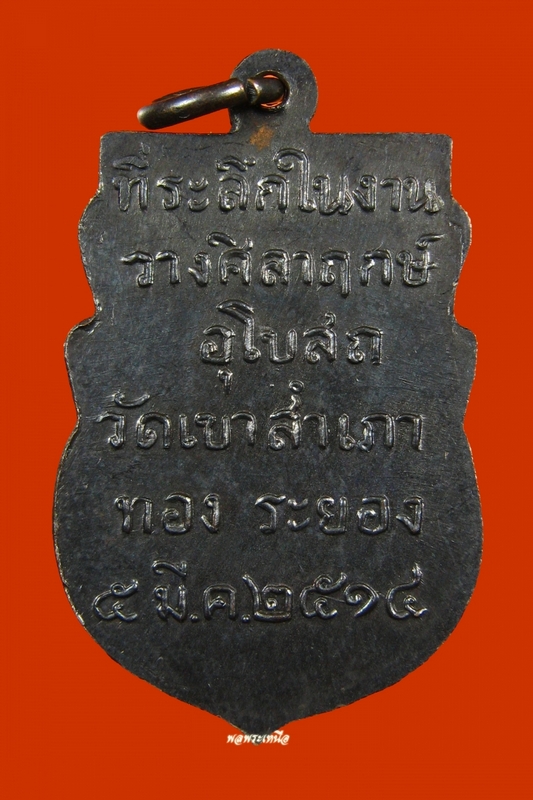 ที่ระลึกในงาน
วางศิลาฤกษ์
อุโบสถ
วัดเขาสำเภา
ทอง ระยอง
๕ มี.ค.๒๕๑๔
พลพระเหนือ